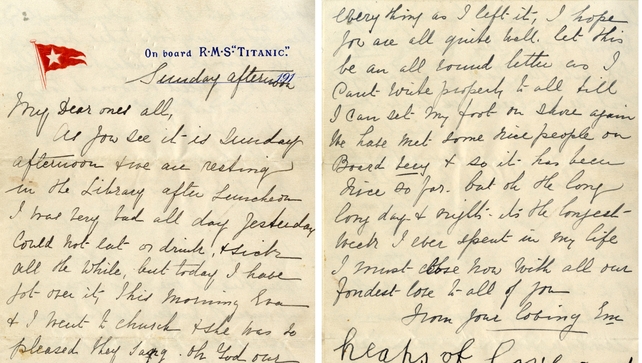 On board R.M.S. "TITANIC."
Sunday afternoon 191
My Dear ones all,
As you see it is Sunday
afternoon & we are resting
in the Library after Luncheon
I was very bad all day yesterday
Could not eat or drink, & sick
all the while, but today I have
got over it, This morning Eva
& I went to church & she was so
pleased they sang. Oh God our
everything as I left it, I hope
you are all quite well. let this
be an all round letter as I
Cant write properly to all till
I can set my foot on shore again
We have met some nice people on
Board & so it has been
nice so far. but oh the long
long day & nights. its the longest
week I ever spent in my life
I must close now with all our
fondest love to all of you
From your loving Em
heaps of love